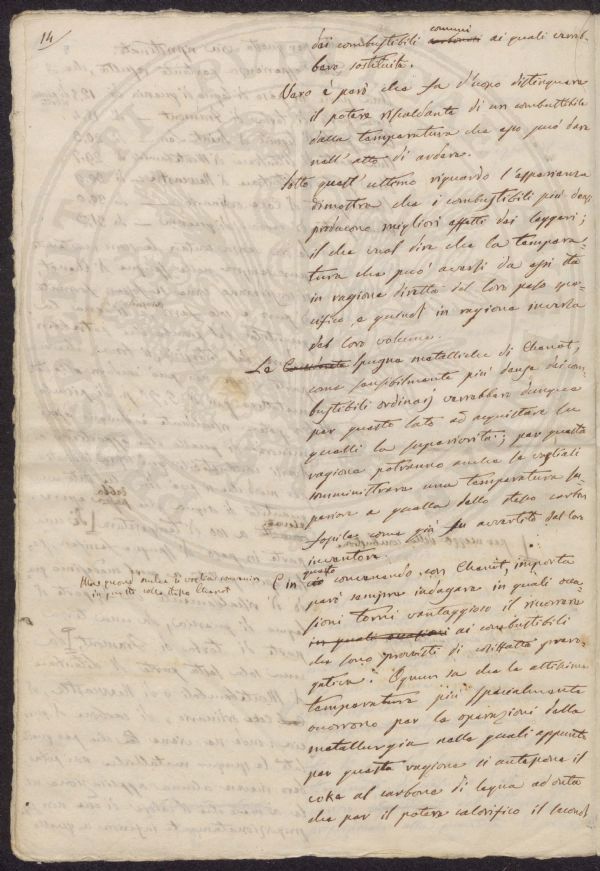 14
comuni
dei combustibili carbonosi ai quali verreb-
bero sostituite.
Vero è però che fa d'uopo distinguere
il potere riscaldante di un combustibile
dalla temperatura che esso può dare
nell'atto di ardere.
Sotto quest'ultimo riguardo l'esperienza
dimostra che i combustibili più densi
producono migliori effetti dei leggeri;
il che vuol dire che la tempera-
tura che può aversi da essi sta
in ragione diretta del loro peso spe-
cifico e quindi in ragione inversa
del loro volume.
Le spugne metalliche di Chenot,
come sensibilmente più dense dei com-
bustibili ordinarj verrebbero dunque
per questo lato ad acquistare su
quelli la superiorità; per questa
ragione potranno anche se vogliasi
somministrare una temperatura su-
periore a quella dello stesso carbon
fossile come già fu avvertito dal loro
inventore.
questo
E in ciò convenendo con Chenot importa
però sempre indagare in quali occa-
sioni torni vantaggioso il ricorrere
in quali occasioni ai combustibili
che sono provvisti di siffatta prero-
gativa. Ognun sa che le altissime
temperature più specialmente
occorrono per le operazioni della
metallurgia nelle quali appunto
per questa ragione si antepone il
coke al carbone di legna ad onta
che per il potere calorifico il secondo
anche si voglia convenire
in questo collo stesso Chenot